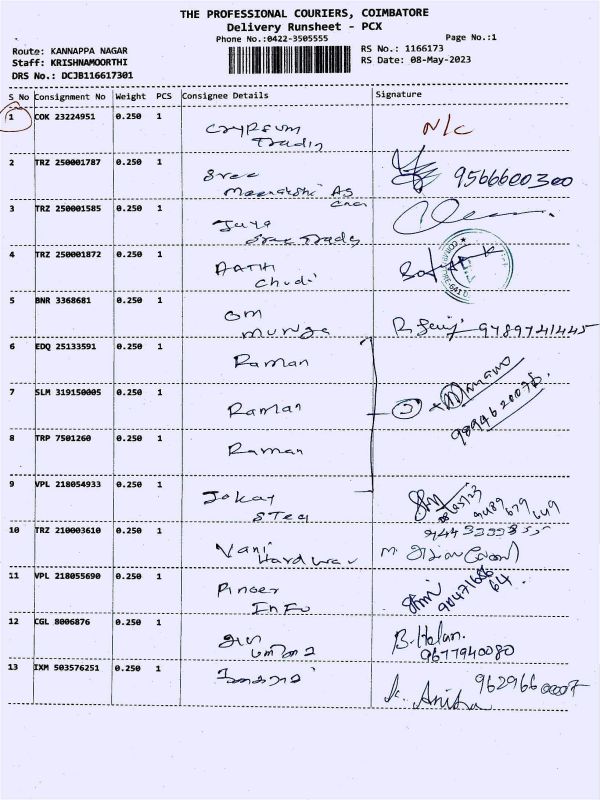 THE PROFESSIONAL COURIERS, COIMBATORE
Delivery Runsheet - PCX
Phone No.:0422-3505555 Page No.:1
Route: KANNAPPA NAGAR RS No.: 1166173
Staff: KRISHNAMOORTHI RS Date: 08-May-2023
DRS No.: DCJB116617301
S No Consignment No Weight PCS Consignee Details Signature
1 COK 23224951 0.250 1
N/C
2 TRZ 250001787 0.250 1 Sree
Meenakshi AS
9566600300
3 TRZ 250001585 0.250 1 Jaya
Sree Trades
4 TRZ 250001872 0.250 1 AATHI
Chudi
5 BNR 3368681 0.250 1 OM
Muruga
9789741445
6 EDQ 25133591 0.250 1 Raman
7 SLM 319150005 0.250 1 Raman
9894620075
8 TRP 7501260 0.250 1 Raman
9 VPL 218054933 0.250 1
Steel
9489 679 649
10 TRZ 210003610 0.250 1 Vani
Hardwar
11 VPL 218055690 0.250 1
Info
12 CGL 8006876 0.250 1
B. Helan.
9677940080
13 IXM 503576251 0.250 1
Anitha 9629660007